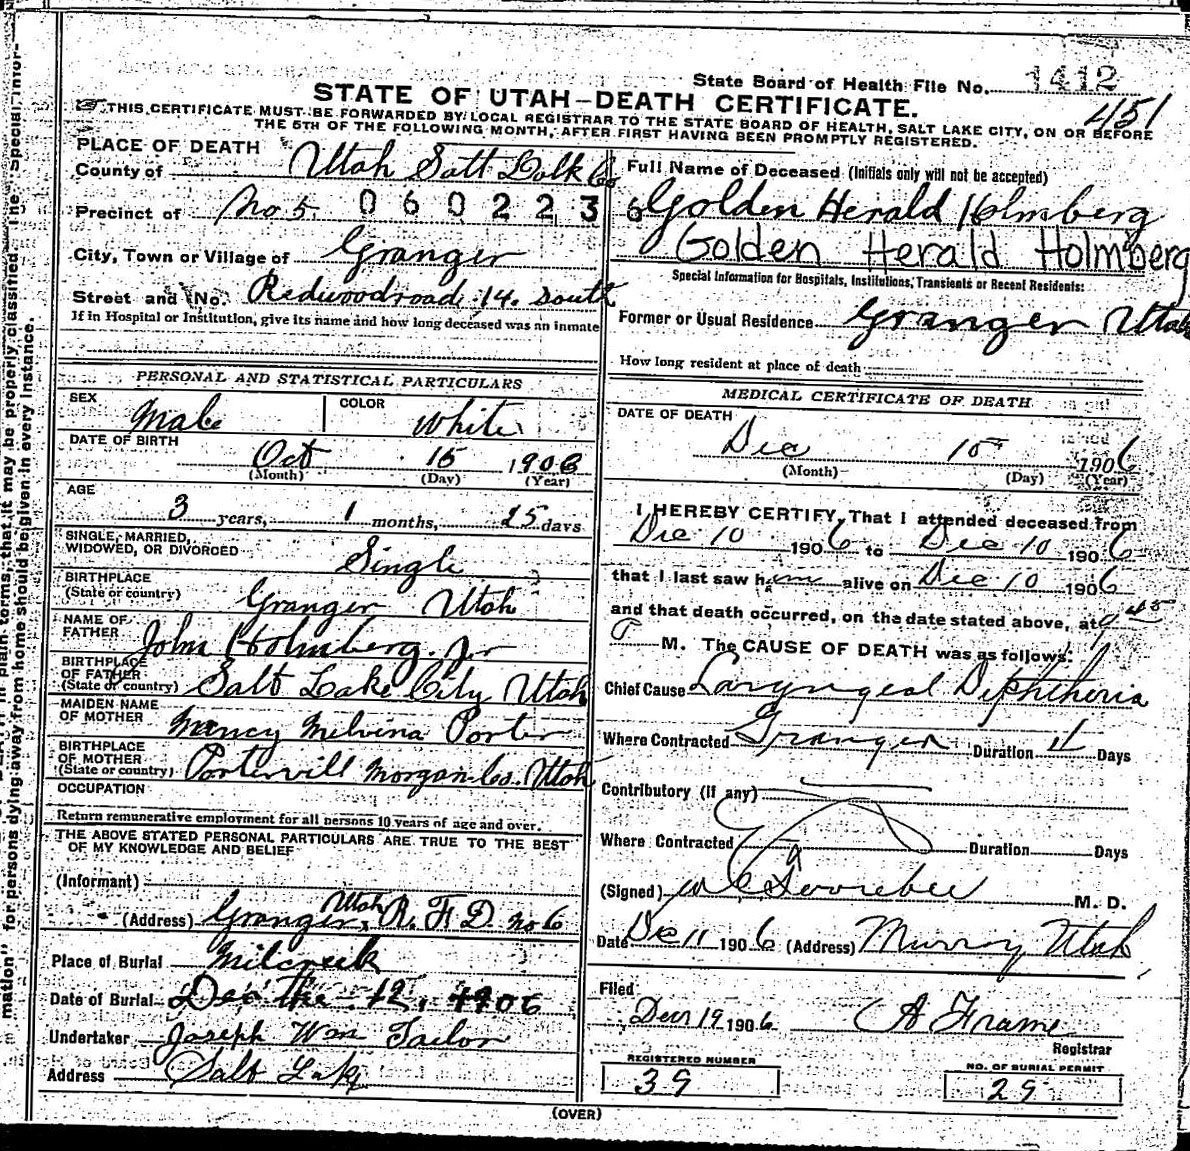 State Board of Health File No. 1412
451
STATE OF UTAH—DEATH CERTIFICATE.
THIS CERTIFICATE MUST BE FORWARDED BY LOCAL REGISTRAR TO THE STATE BOARD OF HEALTH, SALT LAKE CITY, ON OR BEFORE
THE 5TH OF THE FOLLOWING MONTH, AFTER FIRST HAVING BEEN PROMPTLY REGISTERED.
PLACE OF DEATH
County of Utah Salt Lalk Co
Precinct of No 5. 0602236
City, Town or Village of Granger
Street and No. Redwoodroad 14. South
If in Hospital or Institution, give its name and how long deceased was an inmate
PERSONAL AND STATISTICAL PARTICULARS
SEX Male COLOR White
DATE OF BIRTH
Oct 15 1903
(Month) (Day) (Year)
AGE
3 years, 1 months, 25 days
SINGLE, MARRIED,
WIDOWED, OR DIVORCED Single
BIRTHPLACE
(State or country) Granger Utah
NAME OF
FATHER John Holmberg. Jr
BIRTHPLACE
OF FATHER
(State or country) Salt Lake City Utah
MAIDEN NAME
OF MOTHER Nancy Melvina Porter
BIRTHPLACE
OF MOTHER
(State or country) Portervill Morgan Co. Utah
OCCUPATION
Return remunerative employment for all persons 10 years of age and over.
THE ABOVE STATED PERSONAL PARTICULARS ARE TRUE TO THE BEST
OF MY KNOWLEDGE AND BELIEF
(Informant)
(Address) Granger, Utah R. F. D. No 6
Place of Burial Milcreek
Date of Burial Dec the 12, 1906
Undertaker Joseph Wm Tailor
Address Salt Lake
Full Name of Deceased (Initials only will not be accepted)
Golden Herald Holmberg
Golden Herald Holmberg
Special Information for Hospitals, Institutions, Transients or Recent Residents:
Former or Usual Residence Granger Utah
How long resident at place of death
MEDICAL CERTIFICATE OF DEATH
DATE OF DEATH
Dec 10 1906
(Month) (Day) (Year)
I HEREBY CERTIFY, That I attended deceased from
Dec 10 1906 to Dec 10 1906
that I last saw him alive on Dec 10 1906
and that death occurred, on the date stated above, at 9 45
P M. The CAUSE OF DEATH was as follows:
Chief Cause Laryngeal Diphtheria
Where Contracted Granger Duration 11 Days
Contributory (if any)
Where Contracted Duration Days
(Signed) M. D.
Date Dec 11 1906 (Address) Murray Utah
Filed
Dec 19 1906 A Frame
Registrar
REGISTERED NUMBER
39
NO. OF BURIAL PERMIT
29
(OVER)
in plain terms, that it may be properly classified. The "Special Infor-
mation" for persons dying away from home should be given in every instance.